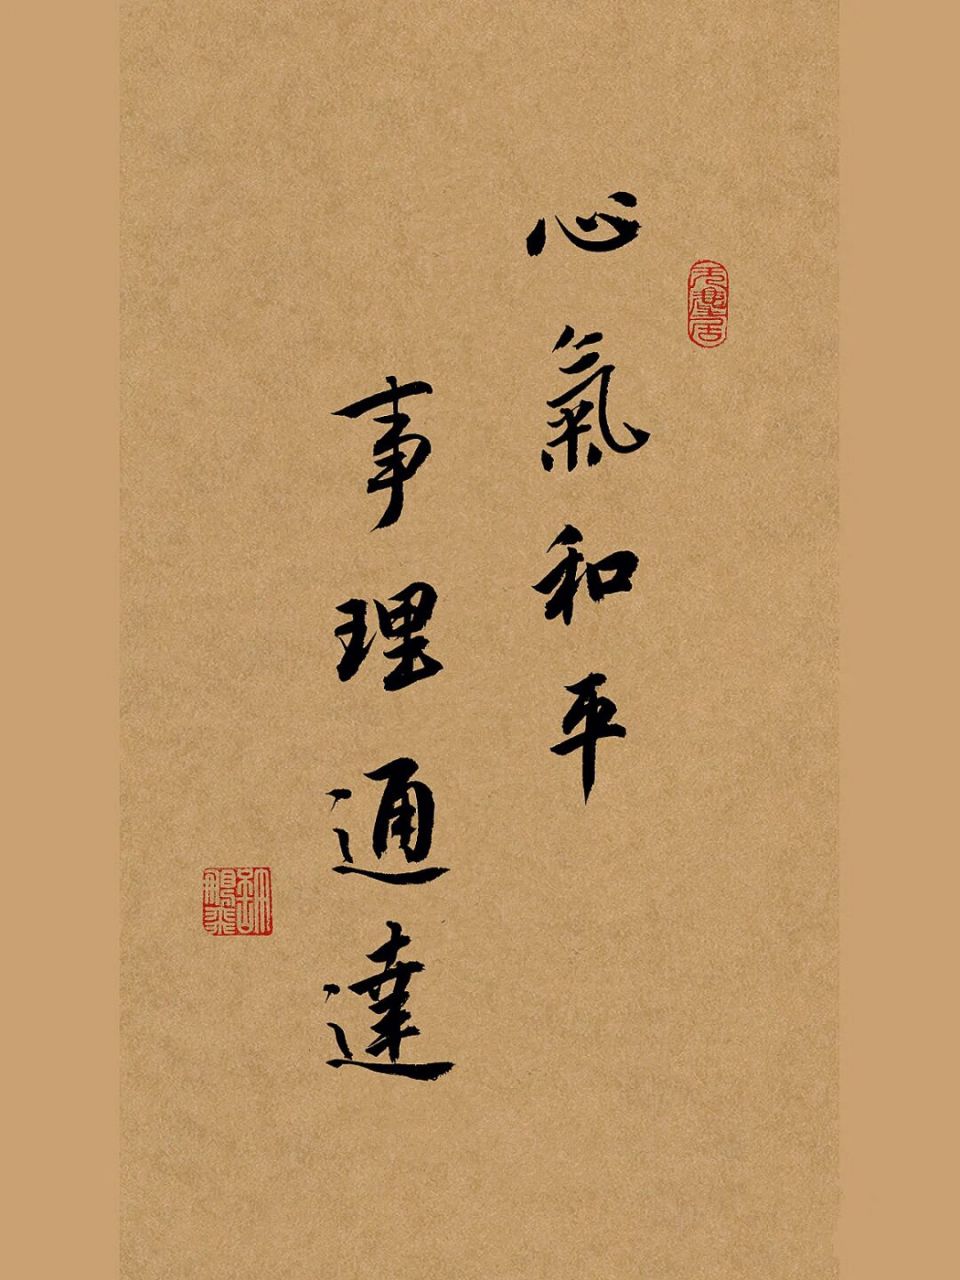 心氣和平
事理通達